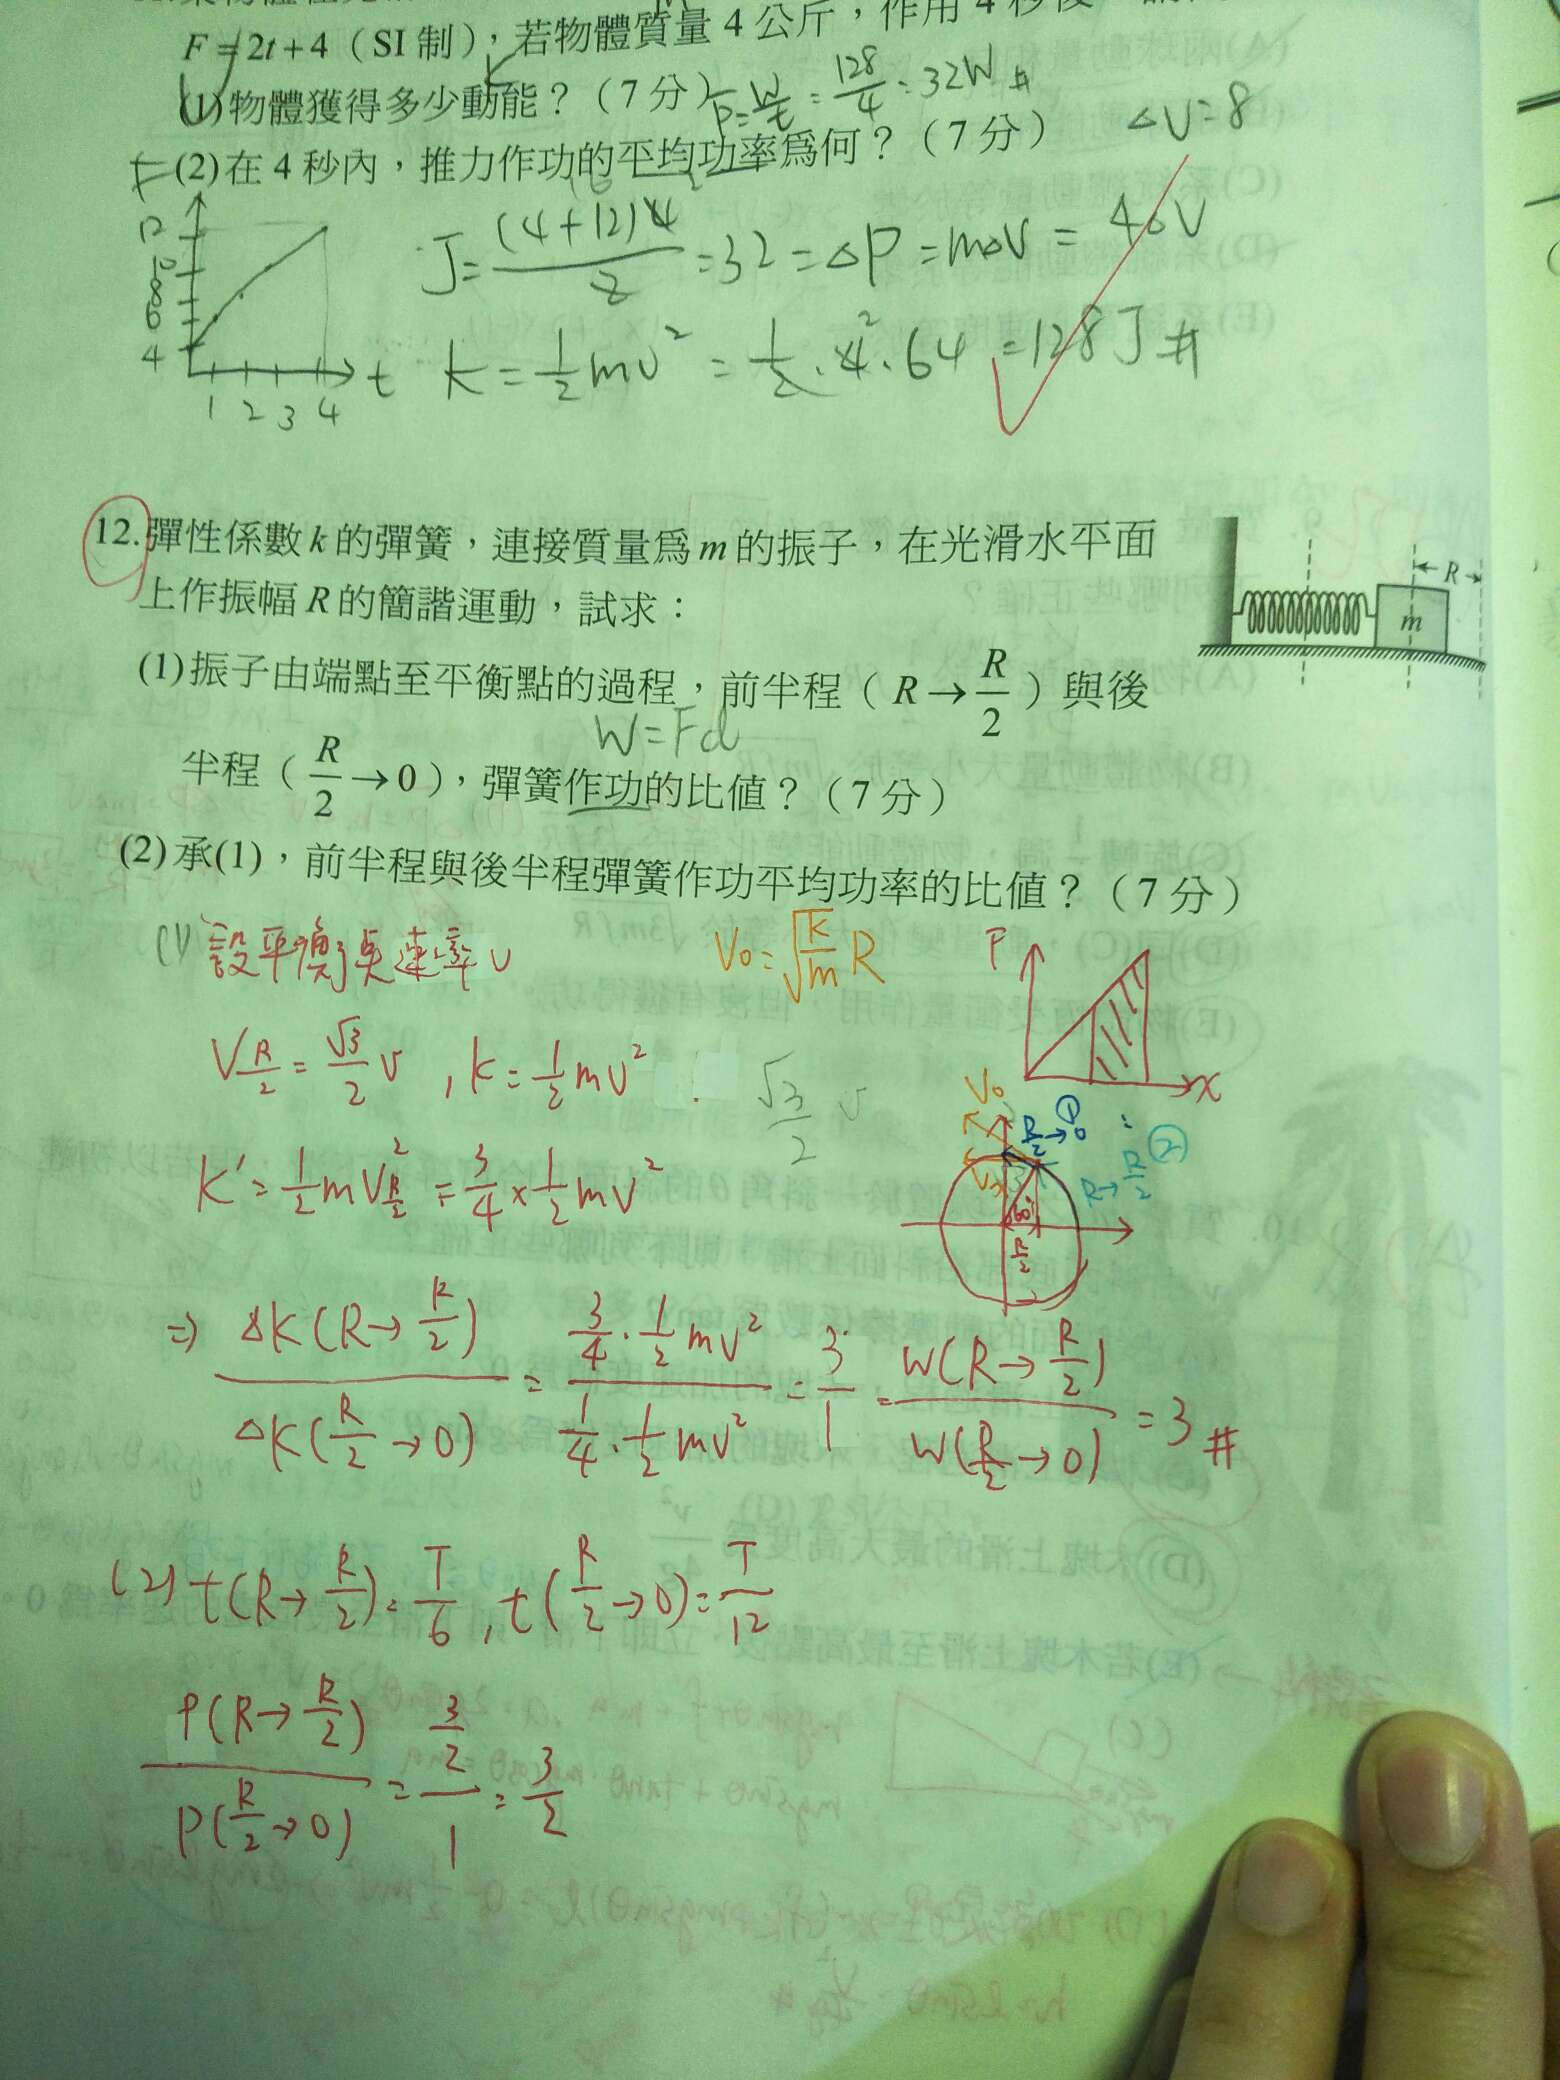 F=2t+4（SI 制），若物體質量 4 公斤，作用 4 秒後
(1)物體獲得多少動能？（7 分）
P=W/t = 128/4 = 32W #
(2)在 4 秒內，推力作功的平均功率為何？（7 分）
ΔV=8
F
12
10
8
6
4
1 2 3 4 t
J=(4+12)4/2 =32=ΔP=mΔV=4ΔV
k=1/2 mv² = 1/2·4·64 =128J #
12.彈性係數 k 的彈簧，連接質量為 m 的振子，在光滑水平面
上作振幅 R 的簡諧運動，試求：
R
m
(1)振子由端點至平衡點的過程，前半程（R→R/2）與後
W=Fd
半程（R/2→0），彈簧作功的比值？（7 分）
(2)承(1)，前半程與後半程彈簧作功平均功率的比值？（7 分）
(1) 設平衡點速率 v
V₀=√(k/m) R
F
x
V_{R/2}=√3/2 v , K=1/2 mv²
√3/2 v
V₀
R/2→0 ①
R→R/2 ②
60°
R/2
K'=1/2 mV_{R/2}² =3/4×1/2 mv²
⇒ ΔK(R→R/2)/ΔK(R/2→0) = (3/4·1/2 mv²)/(1/4·1/2 mv²) = 3/1 = W(R→R/2)/W(R/2→0) =3 #
(2) t(R→R/2)=T/6 , t(R/2→0)=T/12
P(R→R/2)/P(R/2→0) = (3/2)/1 = 3/2